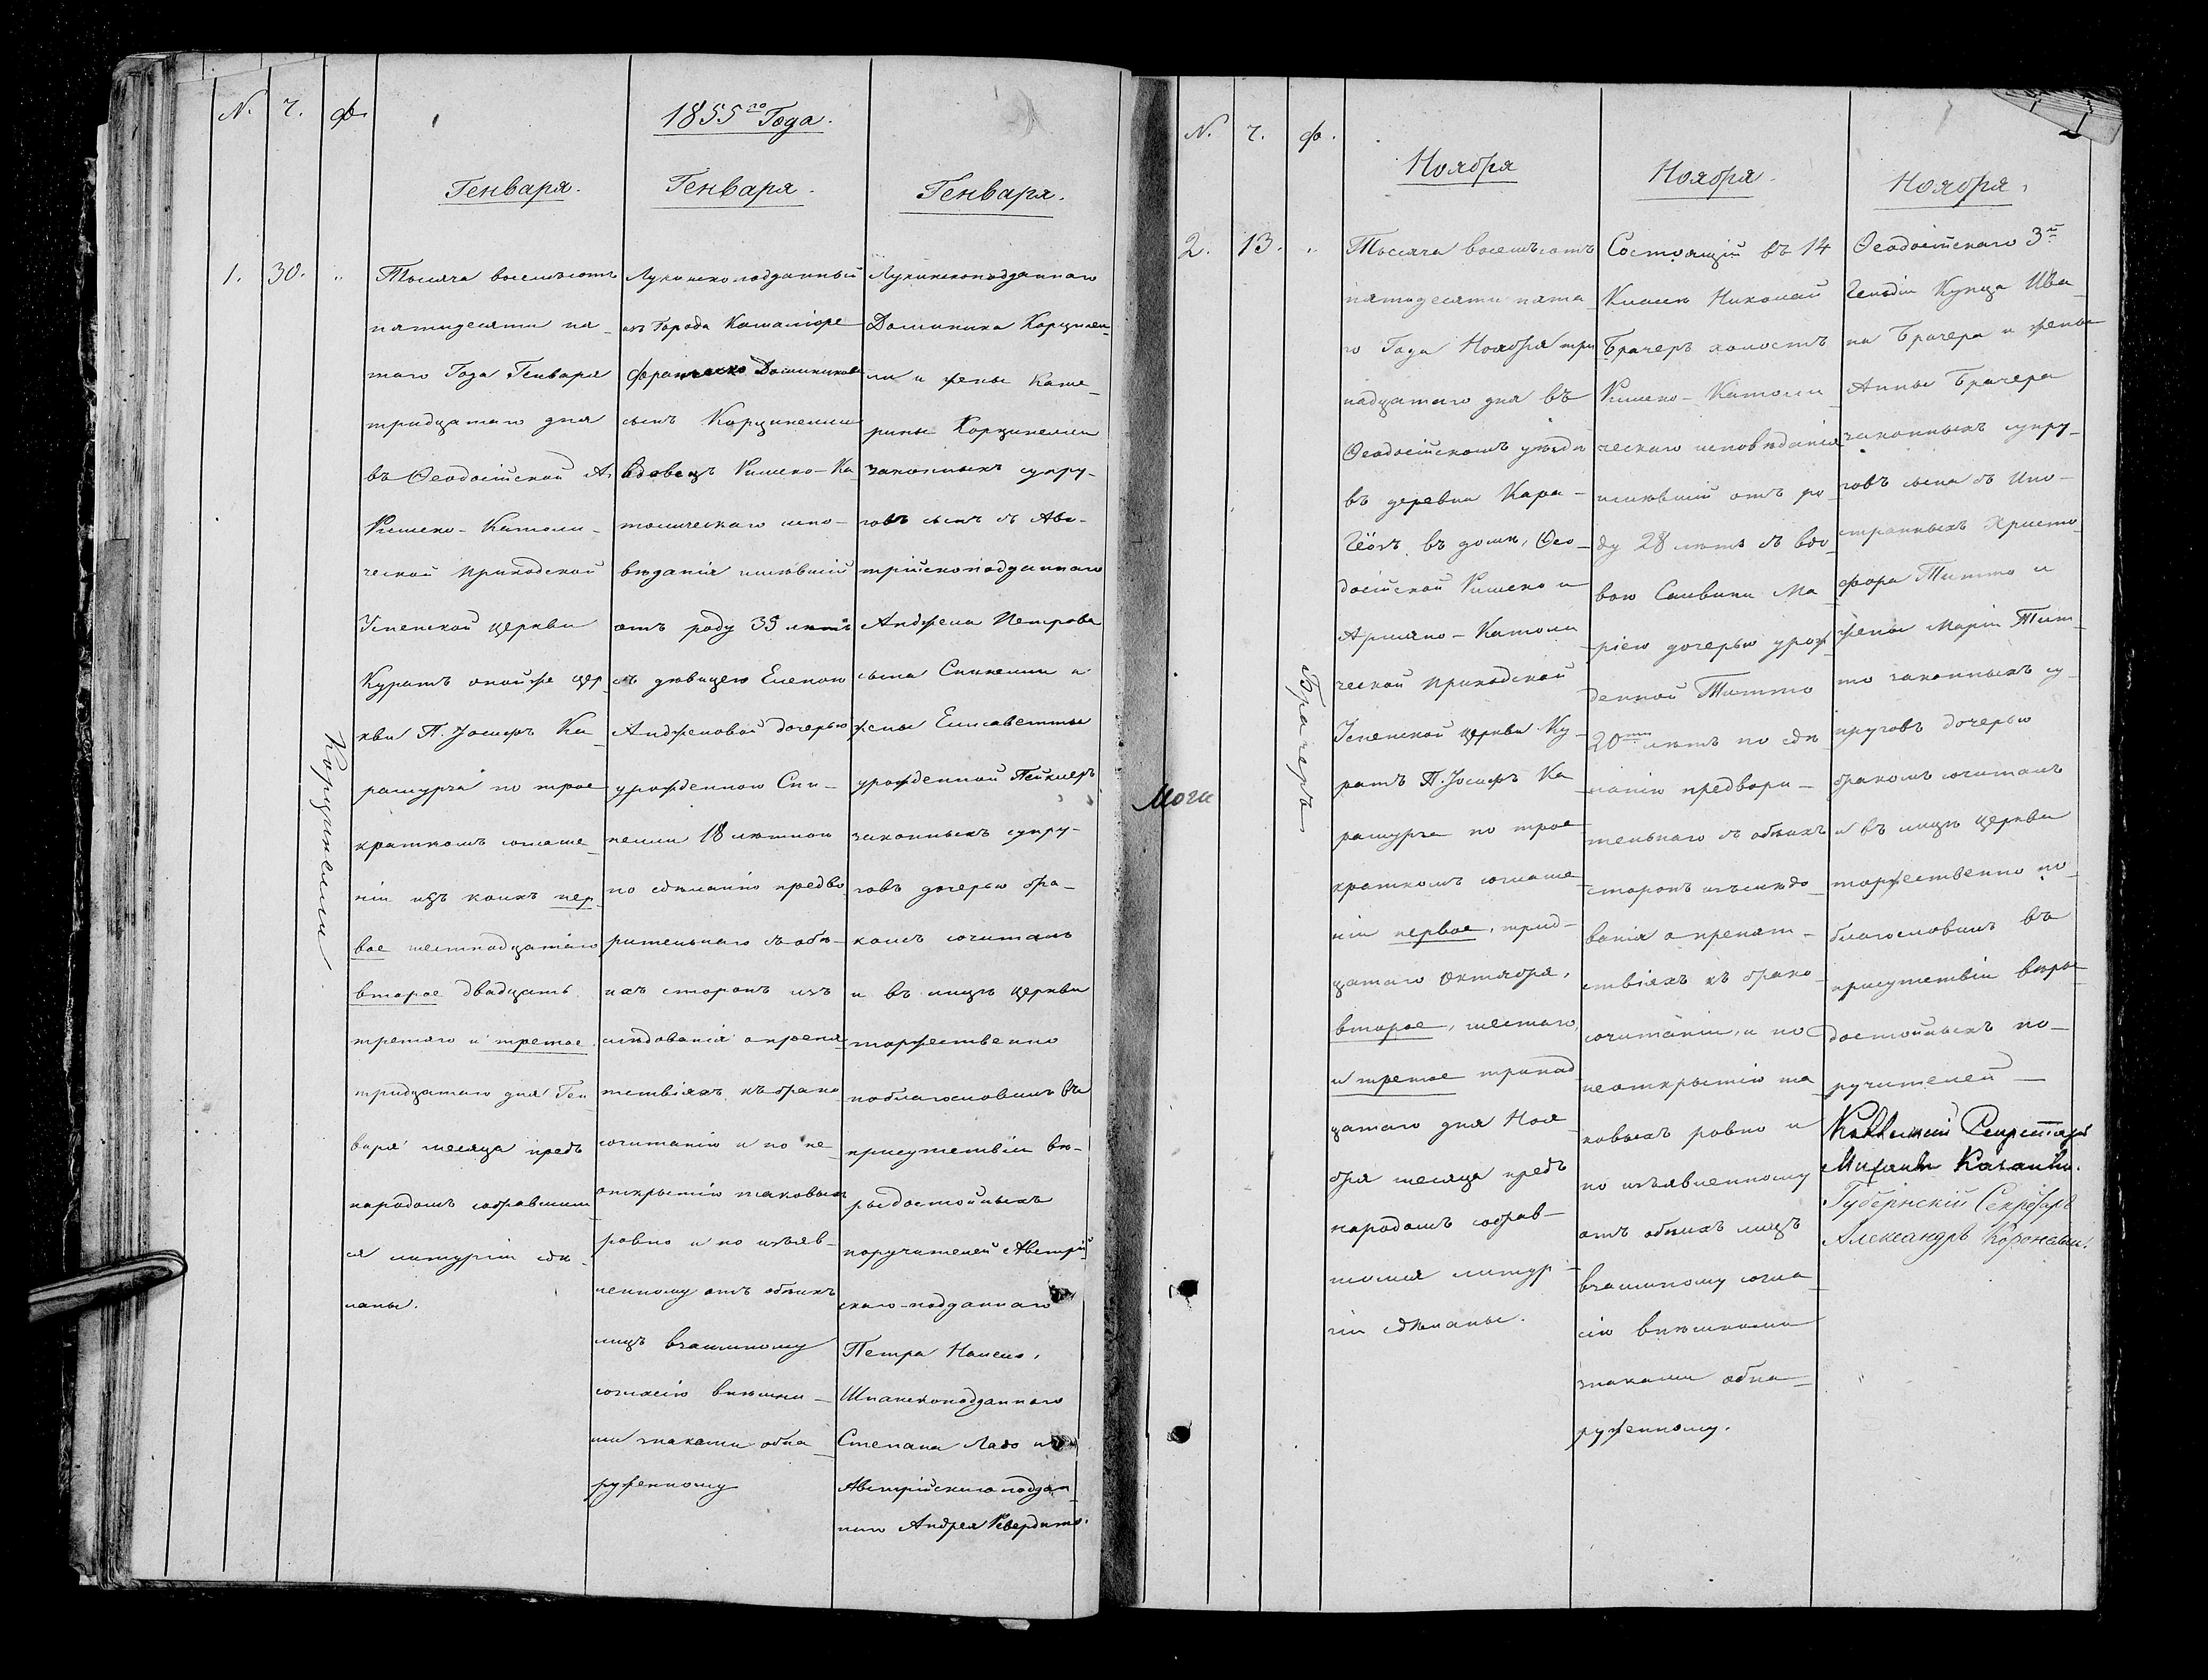 N. ч. ф.
1855го Года.
Генваря.
Генваря.
Генваря.
1. 30. "
Корцинелли
Тысяча восемьсотъ
пятидесяти пя-
таго Года Генваря
тридцатаго дня
въ Ѳеодосійской А.
Римско-Католи-
ческой приходской
Успенской церкви
Куратъ оной же цер-
кви П. Іосифъ Ка-
рамурза по трое
кратномъ соглаше-
ніи изъ коихъ пер-
вое шестнадцатаго
второе двадцать
третяго и третое
тридцатаго дня Ген
варя месяца предъ
народомъ собравшим
ся литургіи сдѣ-
ланы.
Лукинско подданный
изъ Города
Франческо Доминиковъ
сынъ Корцинелли
вдовецъ Римско-Ка
толическаго испо-
вѣданія имѣвшій
отъ роду 35 летъ
съ дѣвицею Еленою
Анджеловой дочерью
урожденною Спи-
нелли 18 летнюю
по сдѣланію предва
рительнаго съ обѣ-
ихъ сторонъ изъ
слѣдованія о препя
тствіяхъ къ брако
сочитанію и по не-
открытію таковыхъ
ровно и по изъяв-
ленному отъ обѣихъ
лицъ взаимному
согласію внѣшни-
ми знаками обна-
руженному
Лукинскоподданнаго
Доминика Корцинел-
ли и жены Кате-
рины Корцинелли
законныхъ супру-
говъ сынъ съ Авс-
трійскоподданнаго
Анджела Петрова
сына Спинелли и
жены Елисаветты
урожденной
законныхъ супру-
говъ дочерью бра-
комъ сочиталъ
и въ лицѣ церкви
торжественно
поблагословилъ въ
присутствіи вѣ-
родостойныхъ
поручителей Австрій
скаго-подданнаго
Петра
Шпанскоподданнаго
Степана Ладо и
Австрійскаго поддан-
наго Андрея
N. ч. ф.
Ноября
Ноября.
Ноября.
2. 13. "
Брачеръ
Тысяча восемьсотъ
пятидесяти пята
го Года Ноября три
надцатаго дня въ
Ѳеодосійскомъ уѣздѣ
въ деревнѣ Кара-
Гёозъ въ домѣ, Ѳео-
досійской Римско и
Армяно-Католи
ческой приходской
Успенской церкви Ку-
ратъ П. Іосифъ Ка
рамурза по трое
кратномъ соглаше-
ніи первое, трид-
цатаго Октября,
второе, шестаго,
и третое тринад
цатаго дня Ноя-
бря месяца предъ
народомъ собрав-
шимся литур-
гіи сдѣланы.
Состоящій въ 14
Классѣ Николай
Брачеръ холостъ
Римско-Католи-
ческаго исповѣданія
имѣвшій отъ ро-
ду 28 летъ съ вдо-
вою Маріею дочерью урож-
денной Титто
20ти летъ по сдѣ
ланію предвари-
тельнаго съ обѣихъ
сторонъ изъслѣдо-
ванія о препят-
ствіяхъ къ брако
сочитанію, и по
неоткрытію та
ковыхъ ровно и
по изъявленному
отъ обѣихъ лицъ
взаимному согла-
сію внѣшними
знаками обна-
руженному.
Ѳеодосійскаго 3й
Гильдіи Купца Ива-
на Брачера и жены
Анны Брачера
законныхъ супру-
говъ сына съ Ино-
странныхъ Христо-
фора Титто и
жены Маріи Тит-
то законныхъ су-
пруговъ дочерью
бракомъ сочиталъ
и въ лицѣ церкви
торжественно по-
благословилъ въ
присутствіи вѣро-
достойныхъ по-
ручителей —
Секретарь
Губернскій Секретарь
Александръ